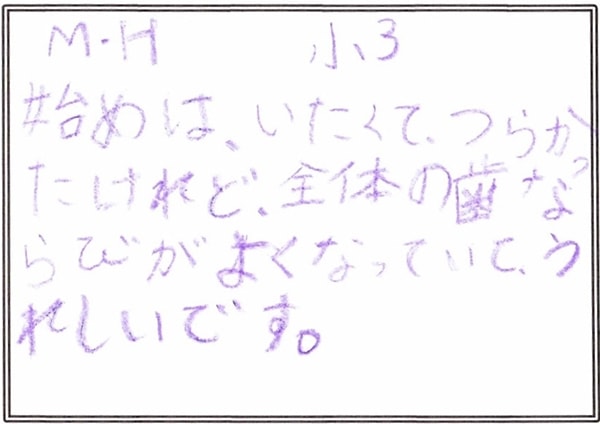 M.H 小3
始めは、いたくて、つらかっ
たけれど、全体の歯なな
らびがよくなっていて、う
れしいです。